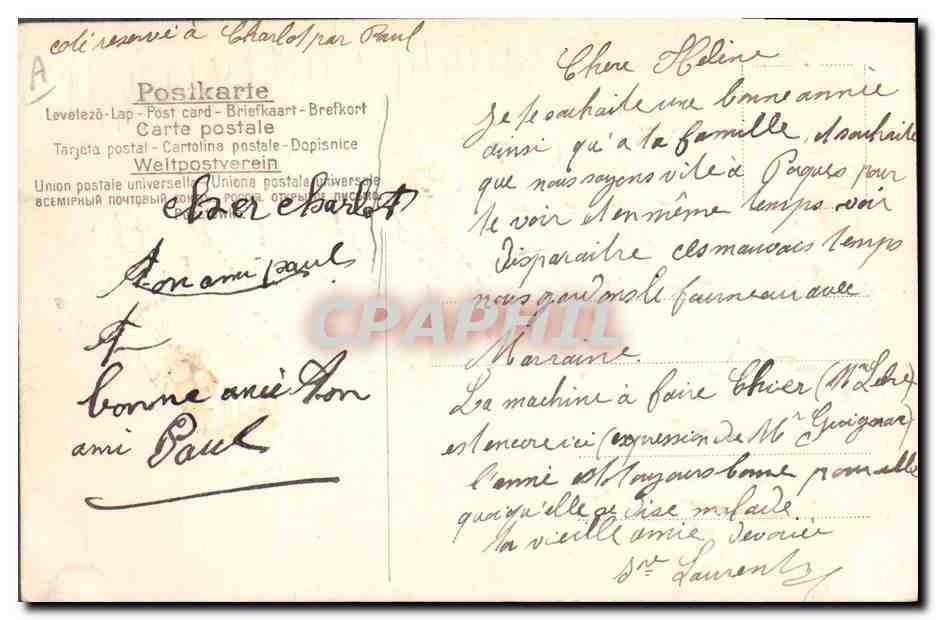 coté reservé à Charlot par Paul
A
Postkarte
Levelező-Lap - Post card - Briefkaart - Brefkort
Carte postale
Tarjeta postal - Cartolina postale - Dopisnice
Weltpostverein
Union postale universelle Unione postale universale
ВСЕМІРНЫЙ ПОЧТОВЫЙ РОССІЯ ОТКРЫТОЕ ПИСЬМО
cher charlot
ton ami paul
bonne anéé ton
ami Paul
Chere Hélène
Je te souhaite une bonne année
ainsi qu'à ta famille, et souhaite
que nous soyons vite à Pâques pour
te voir et en même temps voir
disparaitre ces mauvais temps
nous gardons le fourneau avec
Marraine.
La machine à faire Chier (Mme)
est encore ici (expression de Mr Guignar)
l'anné est toujours bonne pour elle
quoiqu'elle se dise malade
ta vieille amie devouée
Laurent
CPAPHIL